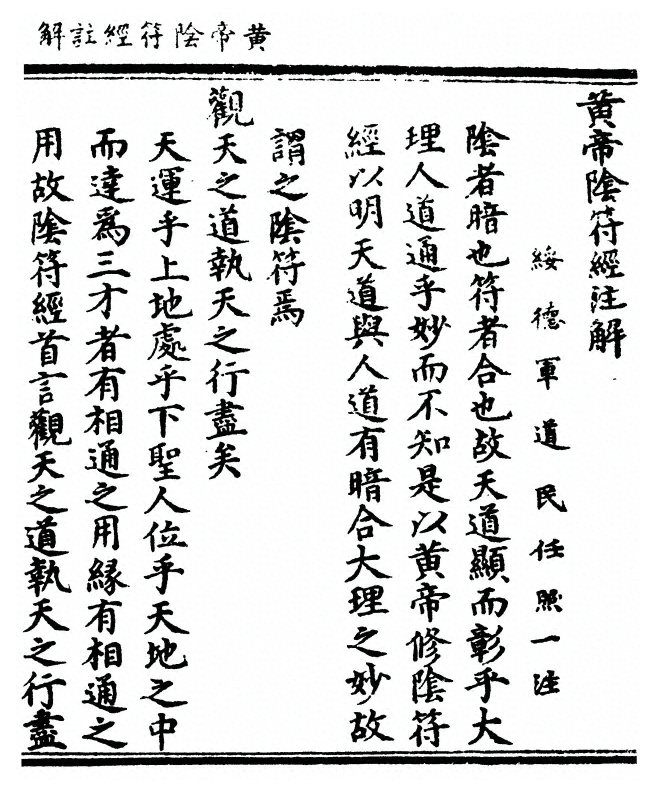 黄帝陰符經註解
黄帝陰符經注解
綏德軍道民任照一注
陰者暗也符者合也故天道顯而彰乎大
理人道通乎妙而不知是以黄帝修陰符
經以明天道與人道有暗合大理之妙故
謂之陰符焉
觀天之道執天之行盡矣
天運乎上地處乎下聖人位乎天地之中
而達爲三才者有相通之用緣有相通之
用故陰符經首言觀天之道執天之行盡